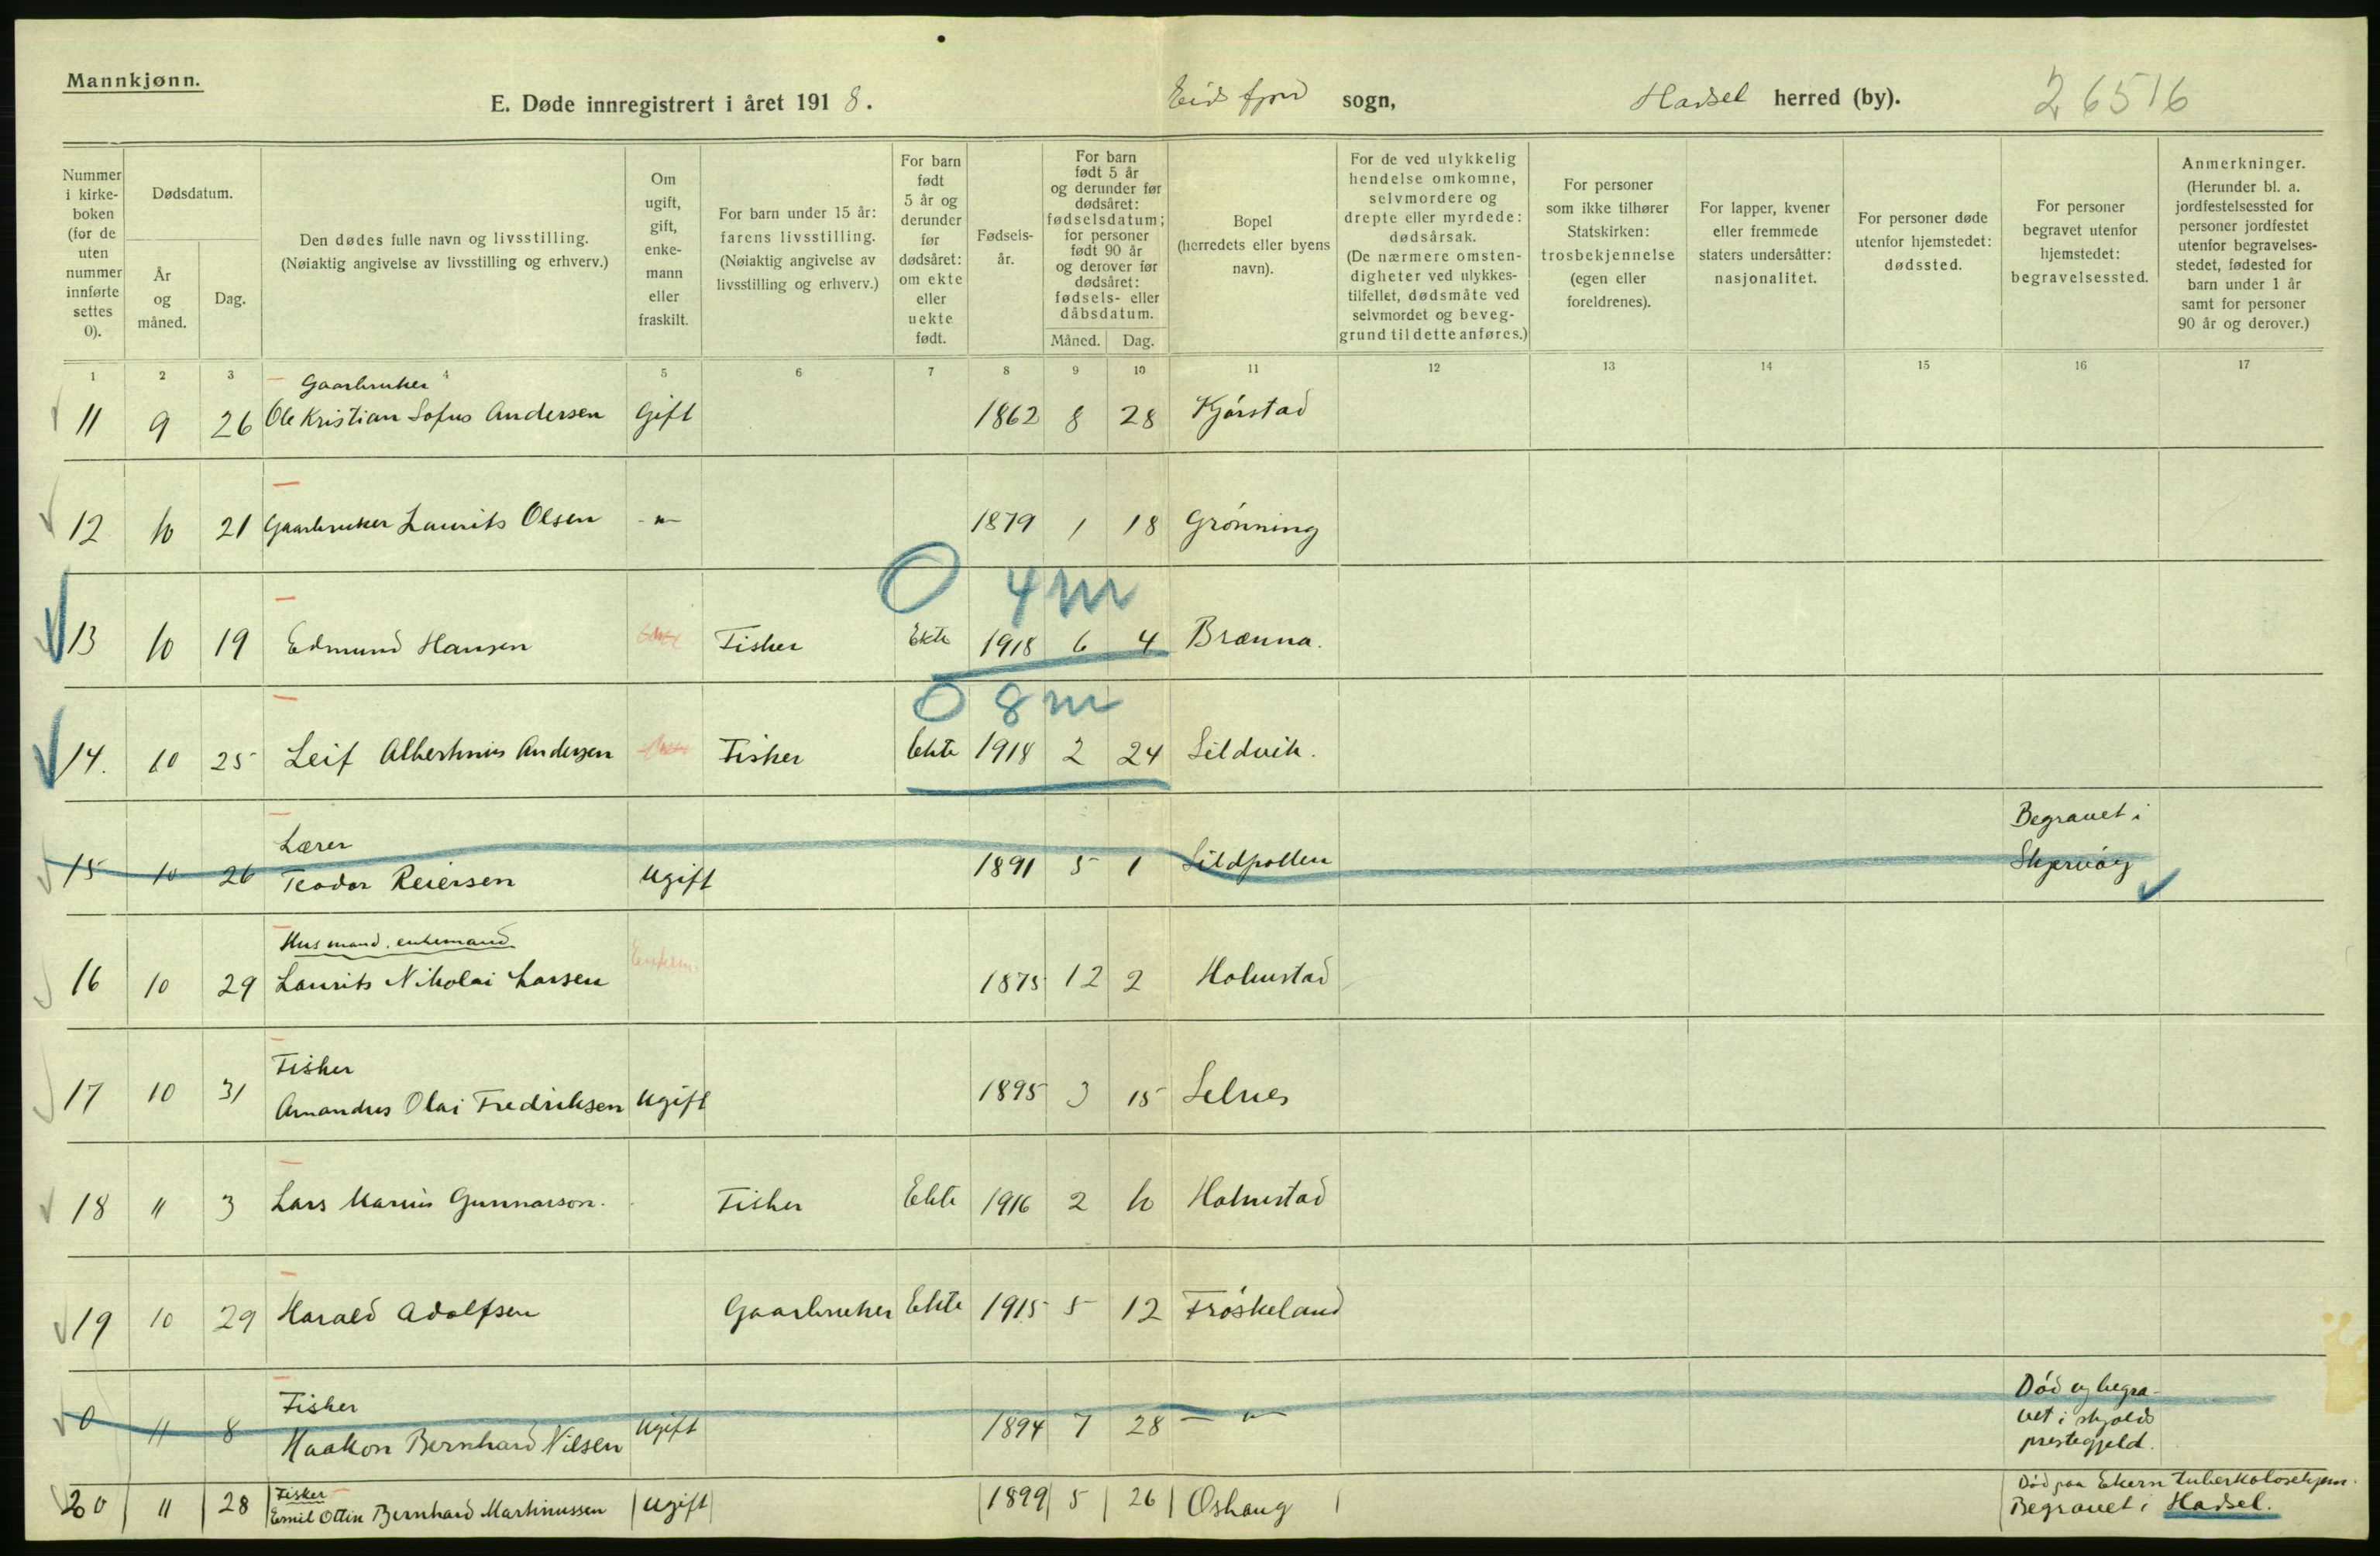 Mannkjønn.
E. Døde innregistrert i året 1918. Eidsfjord sogn, Hadsel herred (by). 26516
Nummer i kirkeboken (for de uten nummer innførte settes 0).
Dødsdatum.
År og måned.
Dag.
Den dødes fulle navn og livsstilling.
(Nøiaktig angivelse av livsstilling og erhverv.)
Om ugift, gift, enkemann eller fraskilt.
For barn under 15 år: farens livsstilling.
(Nøiaktig angivelse av livsstilling og erhverv.)
For barn født 5 år og derunder før dødsåret: om ekte eller uekte født.
Fødselsår.
For barn født 5 år og derunder før dødsåret: fødselsdatum; for personer født 90 år og derover før dødsåret: fødsels- eller dåbsdatum.
Måned. Dag.
Bopel (herredets eller byens navn).
For de ved ulykkelig hendelse omkomne, selvmordere og drepte eller myrdede: dødsårsak.
(De nærmere omstendigheter ved ulykkestilfellet, dødsmåte ved selvmordet og beveggrund til dette anføres.)
For personer som ikke tilhører Statskirken: trosbekjennelse (egen eller foreldrenes).
For lapper, kvener eller fremmede staters undersåtter: nasjonalitet.
For personer døde utenfor hjemstedet: dødssted.
For personer begravet utenfor hjemstedet: begravelsessted.
Anmerkninger.
(Herunder bl. a. jordfestelsessted for personer jordfestet utenfor begravelsesstedet, fødested for barn under 1 år samt for personer 90 år og derover.)
1 2 3 4 5 6 7 8 9 10 11 12 13 14 15 16 17
Gaarbruker
11 9 26 Ole Kristian Sofus Andersen Gift 1862 8 28 Kjørstad
12 10 21 Gaarbruker Laurits Olsen -"- 1879 1 18 Grønning
0 4 m
13 10 19 Edmund Hansen Fisker Ekte 1918 6 4 Brænna.
0 8 m
14. 10 25 Leif Albertinius Andersen Fisker Ekte 1918 2 24 Sildvik.
Lærer
15 10 26 Teodor Reiersen Ugift 1891 5 1 Sildpollen Begravet i
Skjervøy
Husmand. enkemand
16 10 29 Laurits Nikolai Larsen Enkem. 1875 12 2 Holmstad
Fisker
17 10 31 Amandus Olai Fredriksen Ugift 1895 3 15 Selnes
18 11 3 Lars Marius Gunnarson. Fisker Ekte 1916 2 10 Holmstad
19 10 29 Harald Adolfsen Gaarbruker Ekte 1915 5 12 Frøskeland
Fisker
0 11 8 Haakon Bernhard Nilsen Ugift 1894 7 28 - " - Død og begra-
vet i skjolds
prestegjeld.
Fisker
20 11 28 Emil Ottin Bernhard Martinussen Ugift 1899 5 26 Oshaug Død paa Ekern tuberkolosehjem.
Begravet i Hadsel.